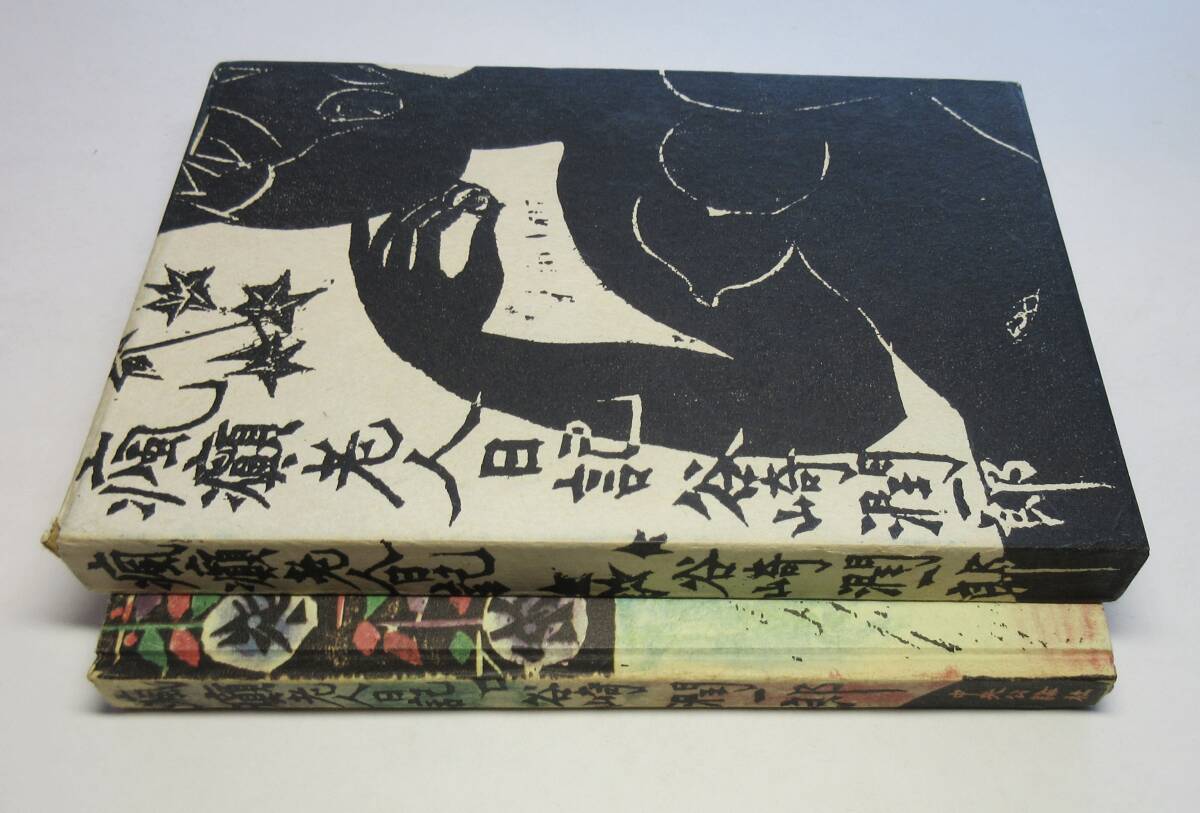 瘋癲老人日記
谷崎潤一郎
瘋癲老人日記
谷崎潤一郎
瘋癲老人日記
谷崎潤一郎
中央公論社